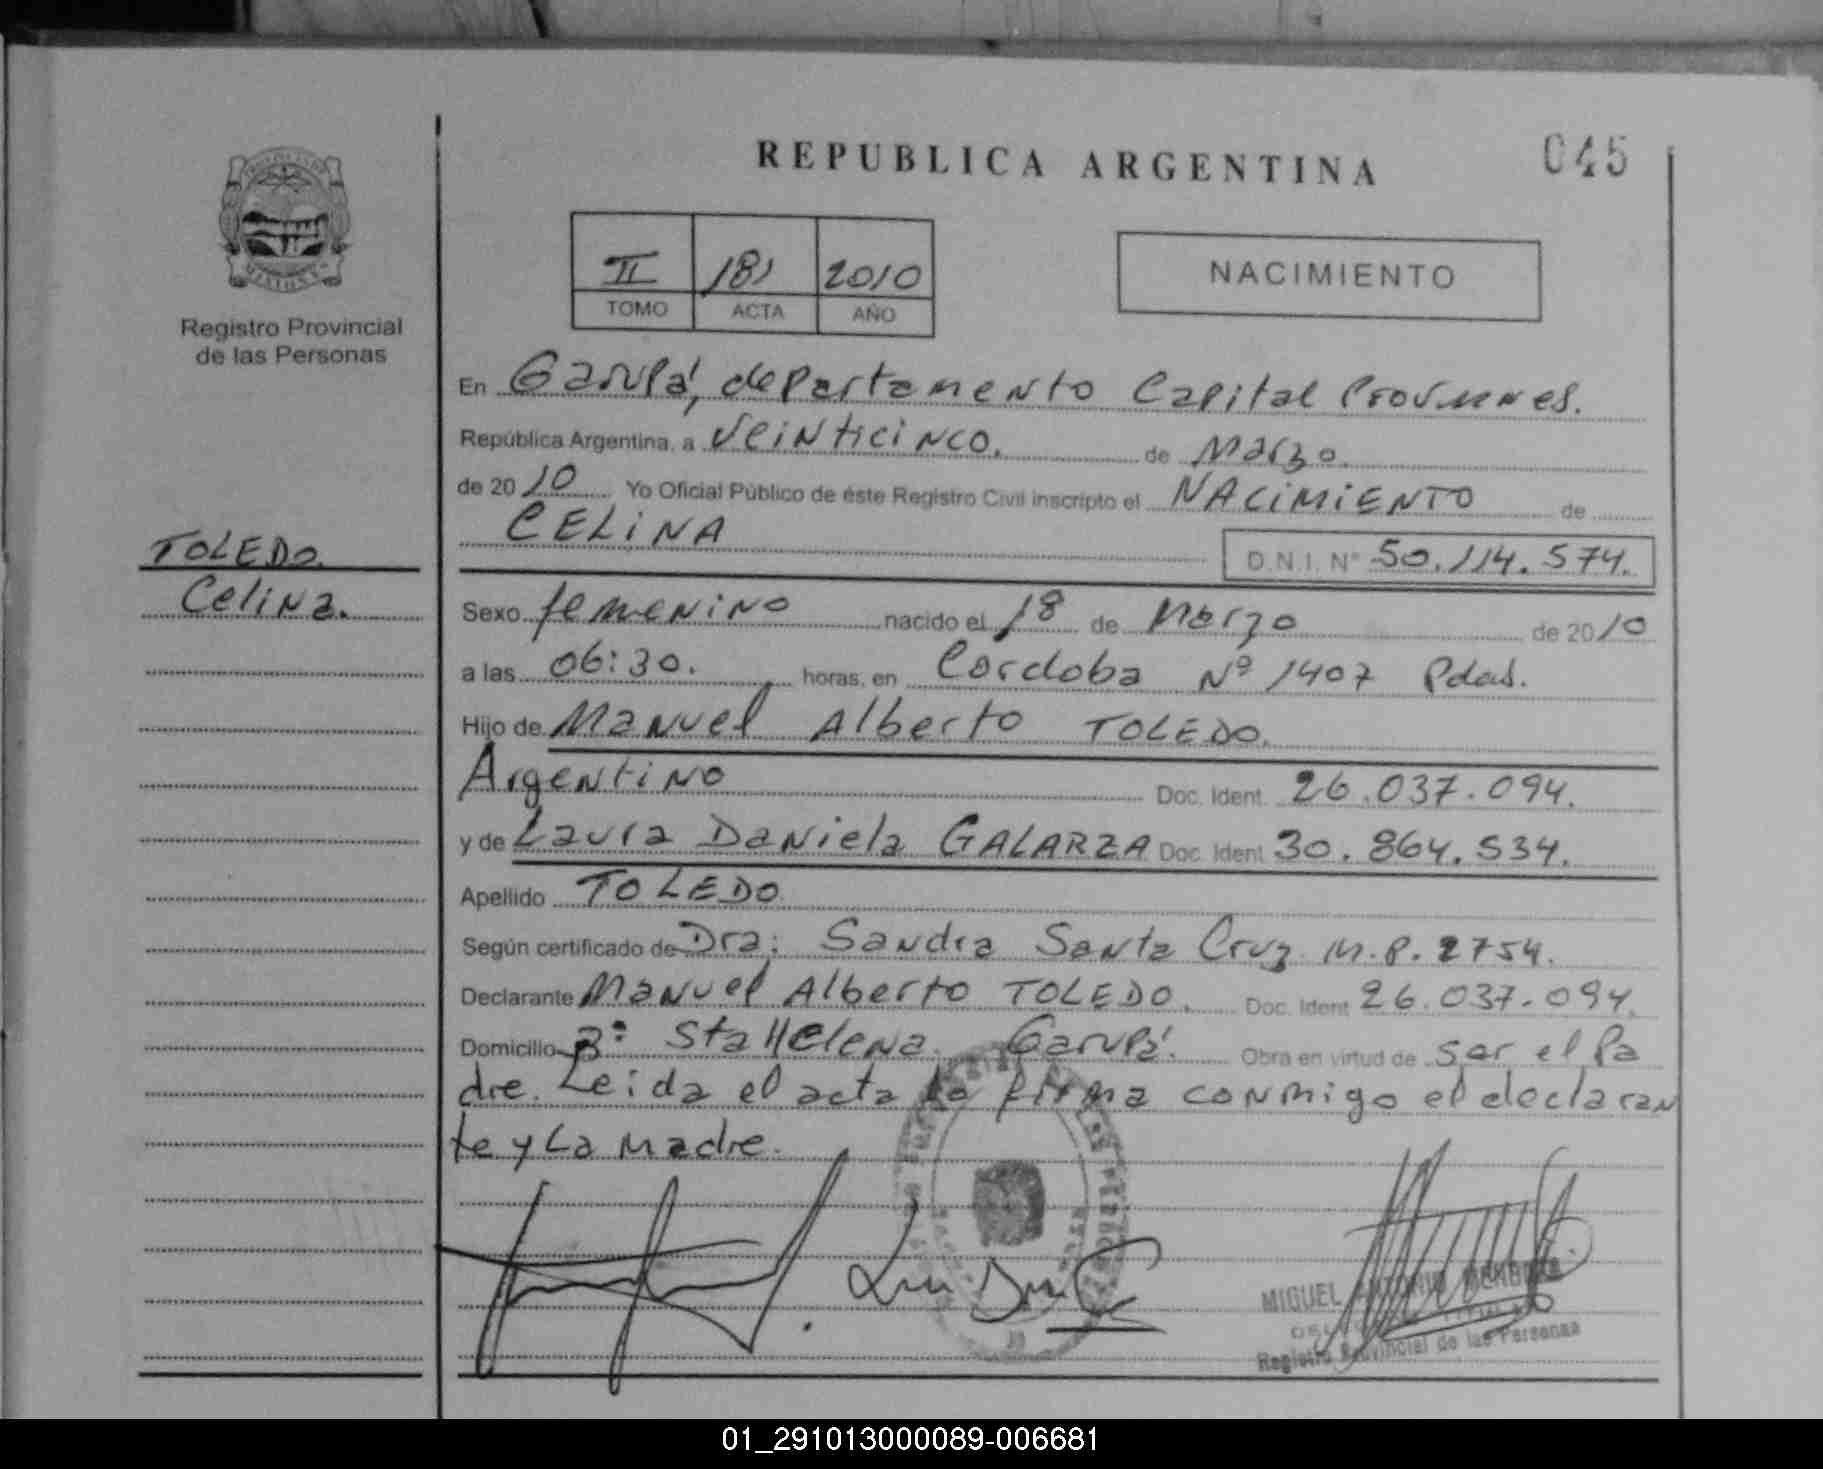 REPUBLICA ARGENTINA
045
MISIONES
Registro Provincial
de las Personas
II 181 2010
TOMO ACTA AÑO
NACIMIENTO
En Garupá, departamento Capital
República Argentina, a Veinticinco. de Marzo.
de 2010 Yo Oficial Público de éste Registro Civil inscripto el NACIMIENTO de
CELINA
D.N.I. Nº 50.114.574.
TOLEDO
Celina.
Sexo femenino nacido el 18 de Marzo de 2010
a las 06:30. horas, en Cordoba Nº 1407 Pdas.
Hijo de Manuel Alberto TOLEDO.
Argentino Doc. Ident. 26.037.094.
y de Laura Daniela GALARZA Doc. Ident 30.864.534.
Apellido TOLEDO
Según certificado de Dra: Sandra Santa Cruz M.P. 2754.
Declarante Manuel Alberto TOLEDO. Doc. Ident 26.037.094.
Domicilio Bº Sta Helena Garupá. Obra en virtud de ser el Pa
dre. Leida el acta la firma conmigo el declaran
te y La madre.
MIGUEL ANTONIO MENDOZA
Registro Provincial de las Personas
01_291013000089-006681